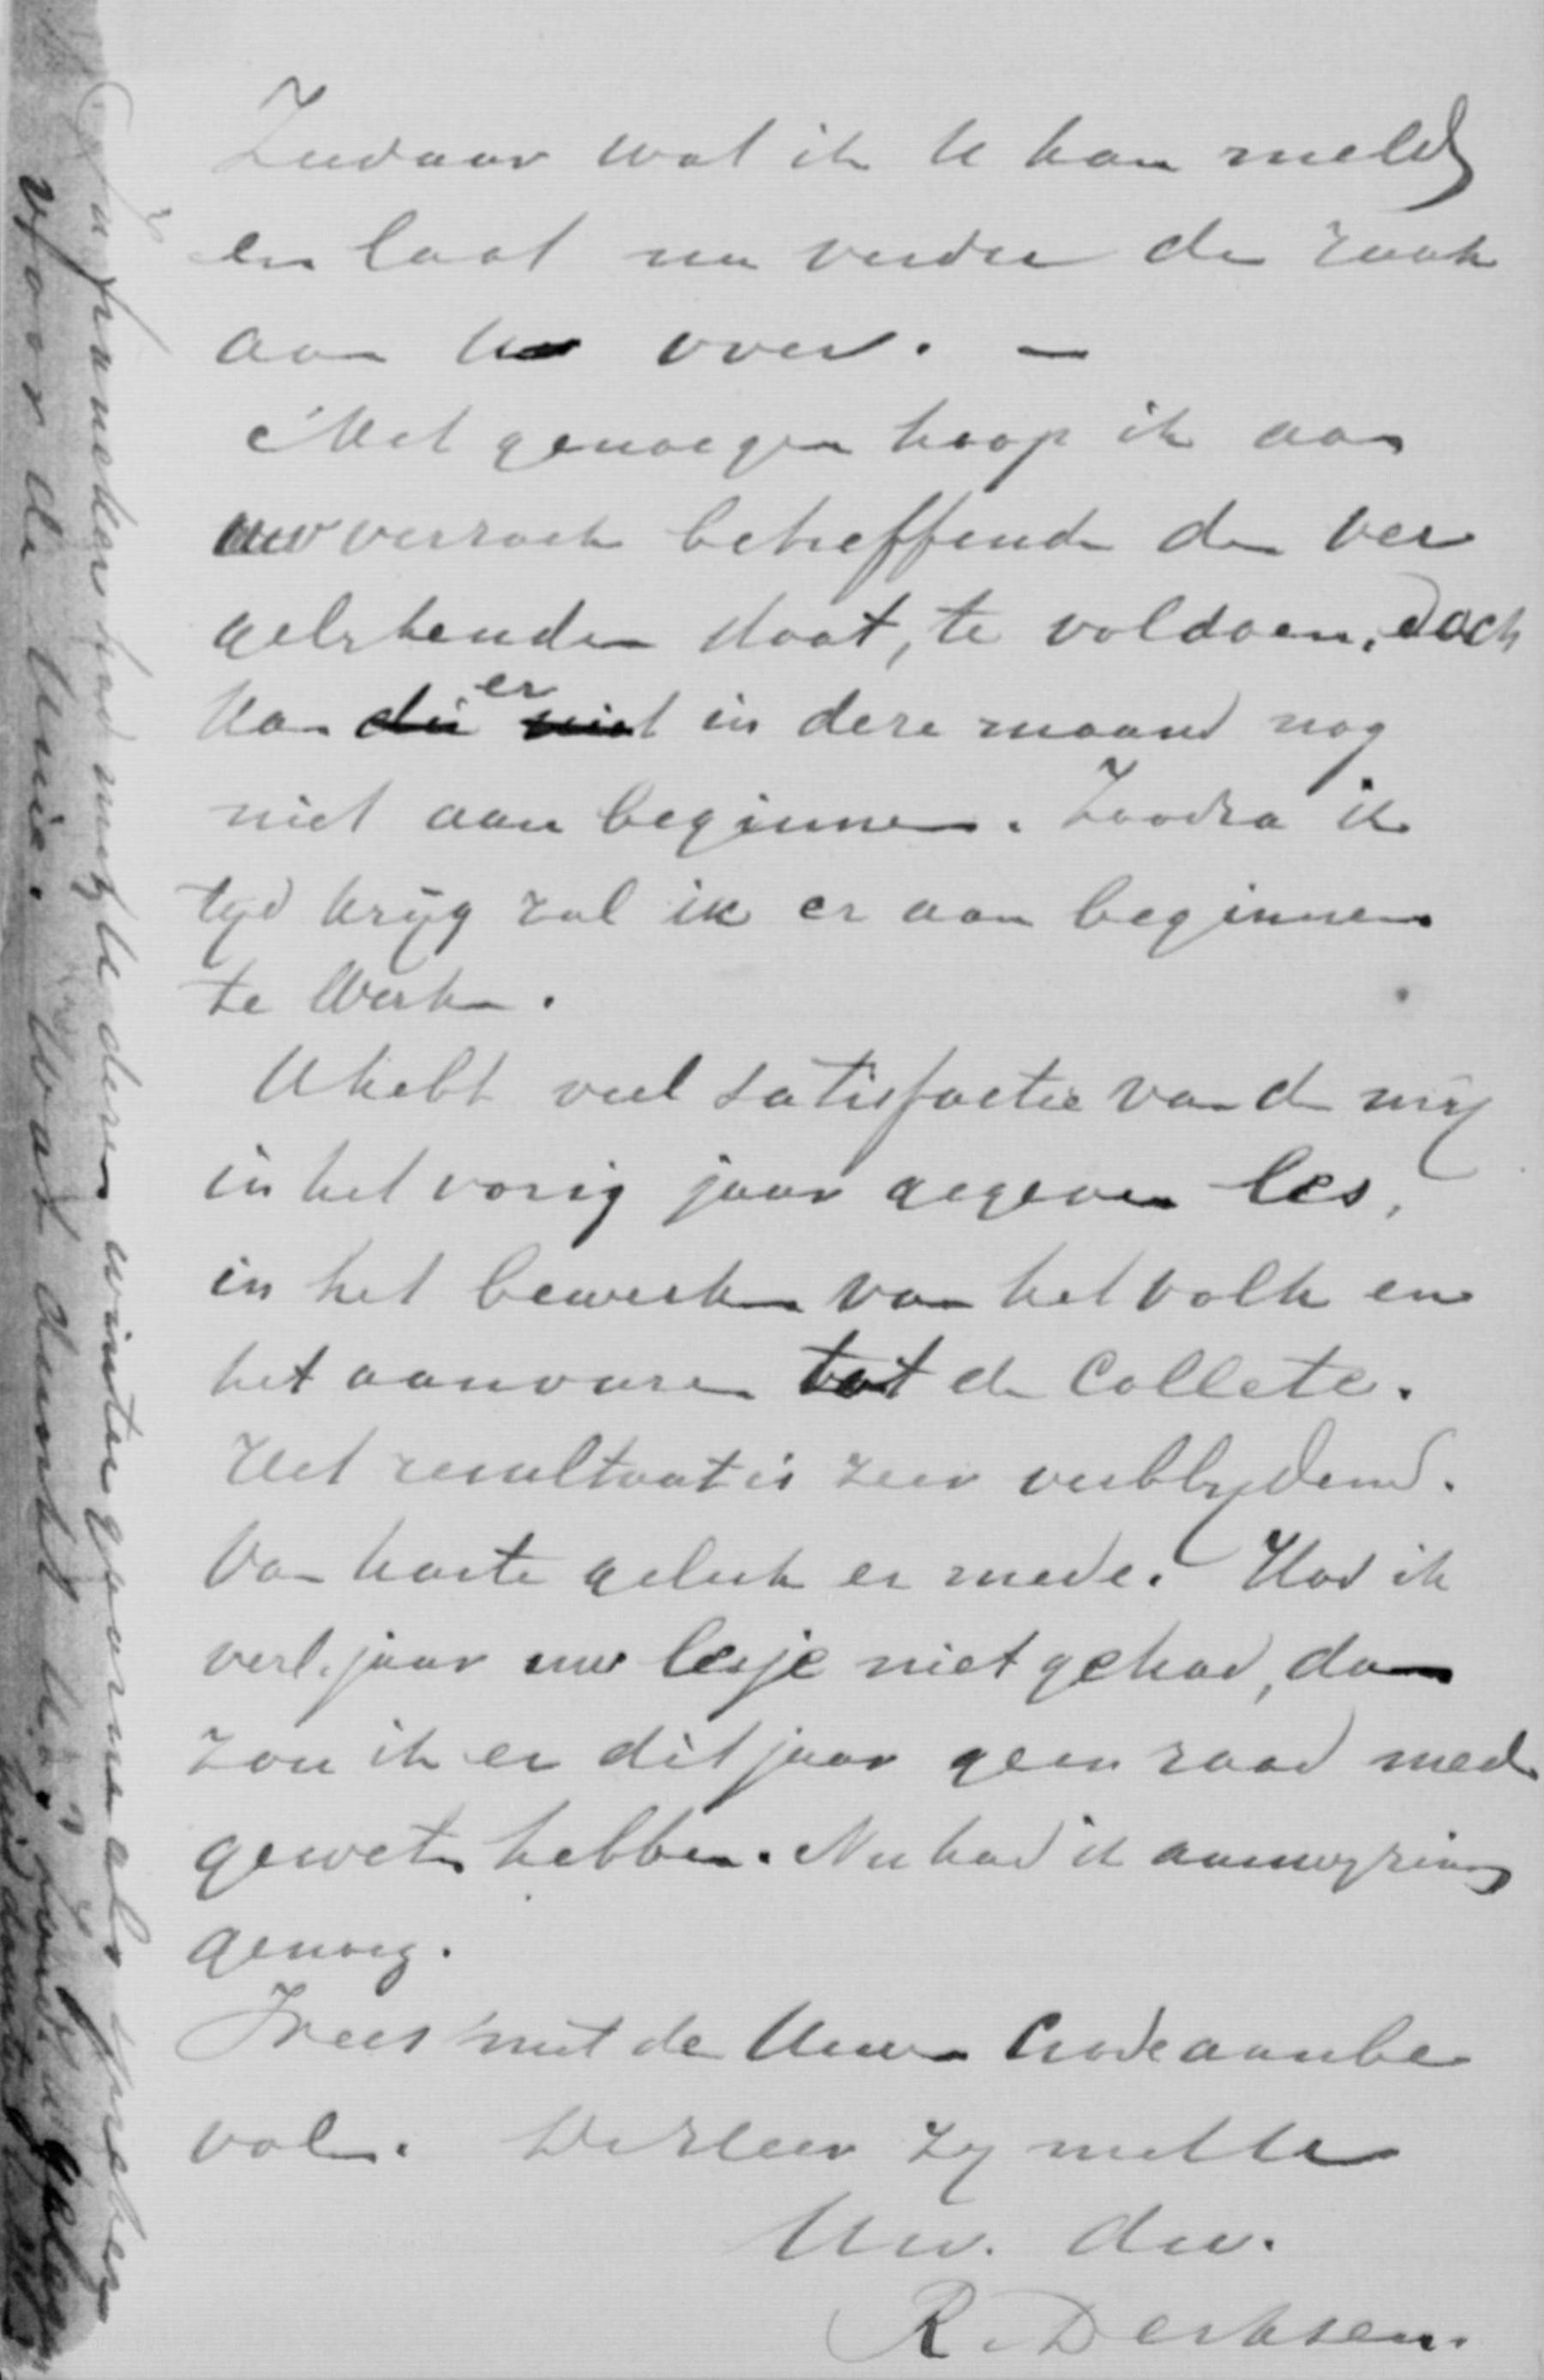 Ziedaar wat ik U kan melden
en laat nu verder de zaak
aan U over. —
Met genoegen hoop ik aan
uw verzoek betreffende den ver
gelykenden staat, te voldoen, doch
kan die er niet in deze maand nog
niet aan beginnen. Zoodra ik
tyd krijg zal ik er aan beginnen
te werken.
U hebt veel satisfactie van de mij
in het vorig jaar gegeven les,
in het bewerken van het volk en
het aanvuren tot de Collete.
Het resultaat is zeer verblydend.
Van harte geluk er mede. Had ik
verl. jaar uw lesje niet gehad, dan
zou ik er dit jaar geen raad mede
geweten hebben. Nu had ik aanwyzing
genoeg.
Wees met de Uwen Gode aanbe
volen. De Heer zy met U
Uw. dw.
R. Derksen.
voor de Unie. Wat denkt